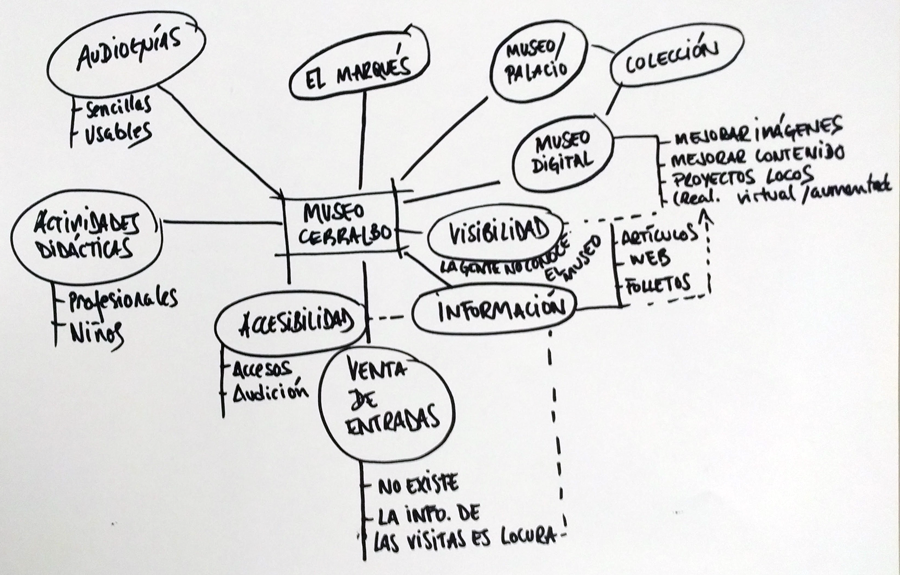 AUDIOGUÍAS
Sencillas
Usables
EL MARQUÉS
MUSEO/
PALACIO
COLECCIÓN
MUSEO
DIGITAL
MEJORAR IMÁGENES
MEJORAR CONTENIDO
PROYECTOS LOCOS
(Real. virtual/aumentada
ACTIVIDADES
DIDÁCTICAS
Profesionales
Niños
MUSEO
CERRALBO
VISIBILIDAD
LA GENTE NO CONOCE
EL MUSEO
ARTÍCULOS
WEB
FOLLETOS
INFORMACIÓN
ACCESIBILIDAD
Accesos
Audición
VENTA
DE
ENTRADAS
NO EXISTE
LA INFO. DE
LAS VISITAS ES LOCURA